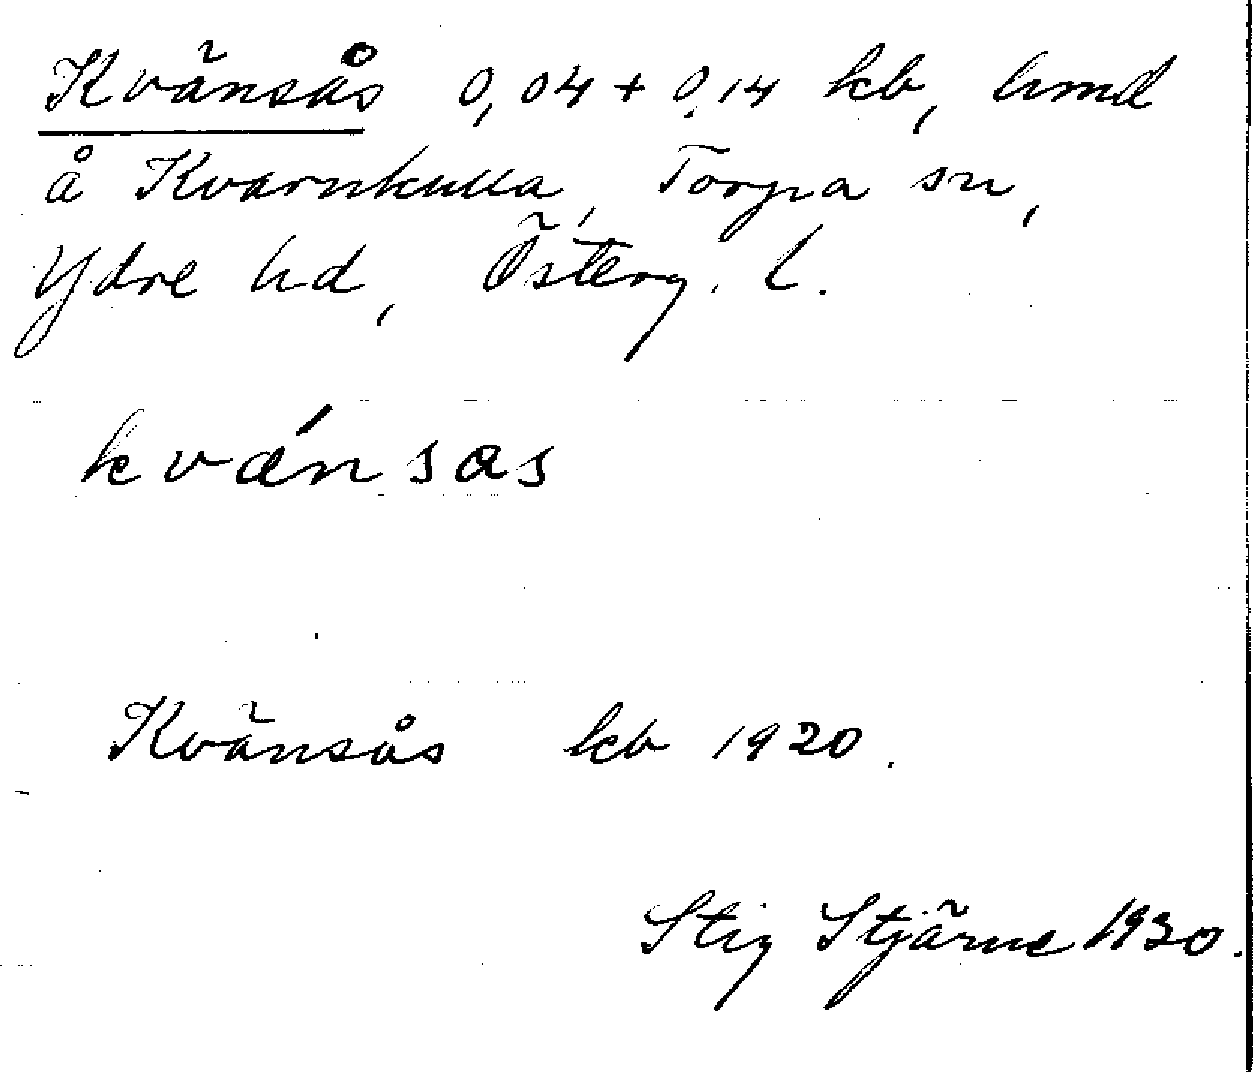 Kvänsås 0,04 + 0,14 kb, hmd
å Kvarnkulla, Torpa sn,
Ydre hd, Österg. l.
kvánsas
Kvänsås kb 1920.
Stig Stjärne 1930.